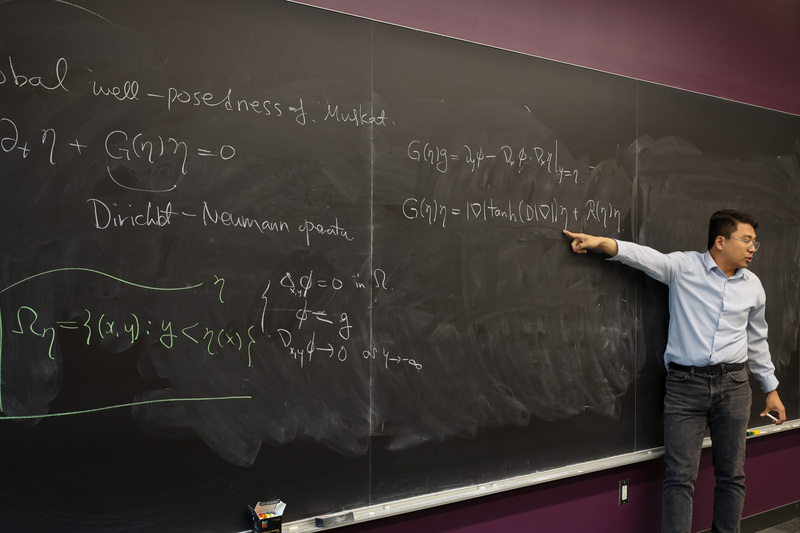 obal well-posedness of Muskat.
∂ₜη + G(η)η = 0
Dirichlet-Neumann operator
η
Ω_η = {(x,y) : y < η(x)}
Δ_{x,y}ϕ = 0 in Ω.
ϕ = g
∇_{x,y}ϕ → 0 as y → -∞
G(η)g = ∂_yϕ - ∇ₓϕ·∇ₓη|_{y=η}
G(η)η = |∇|tanh(D|∇|)η + R(η)η